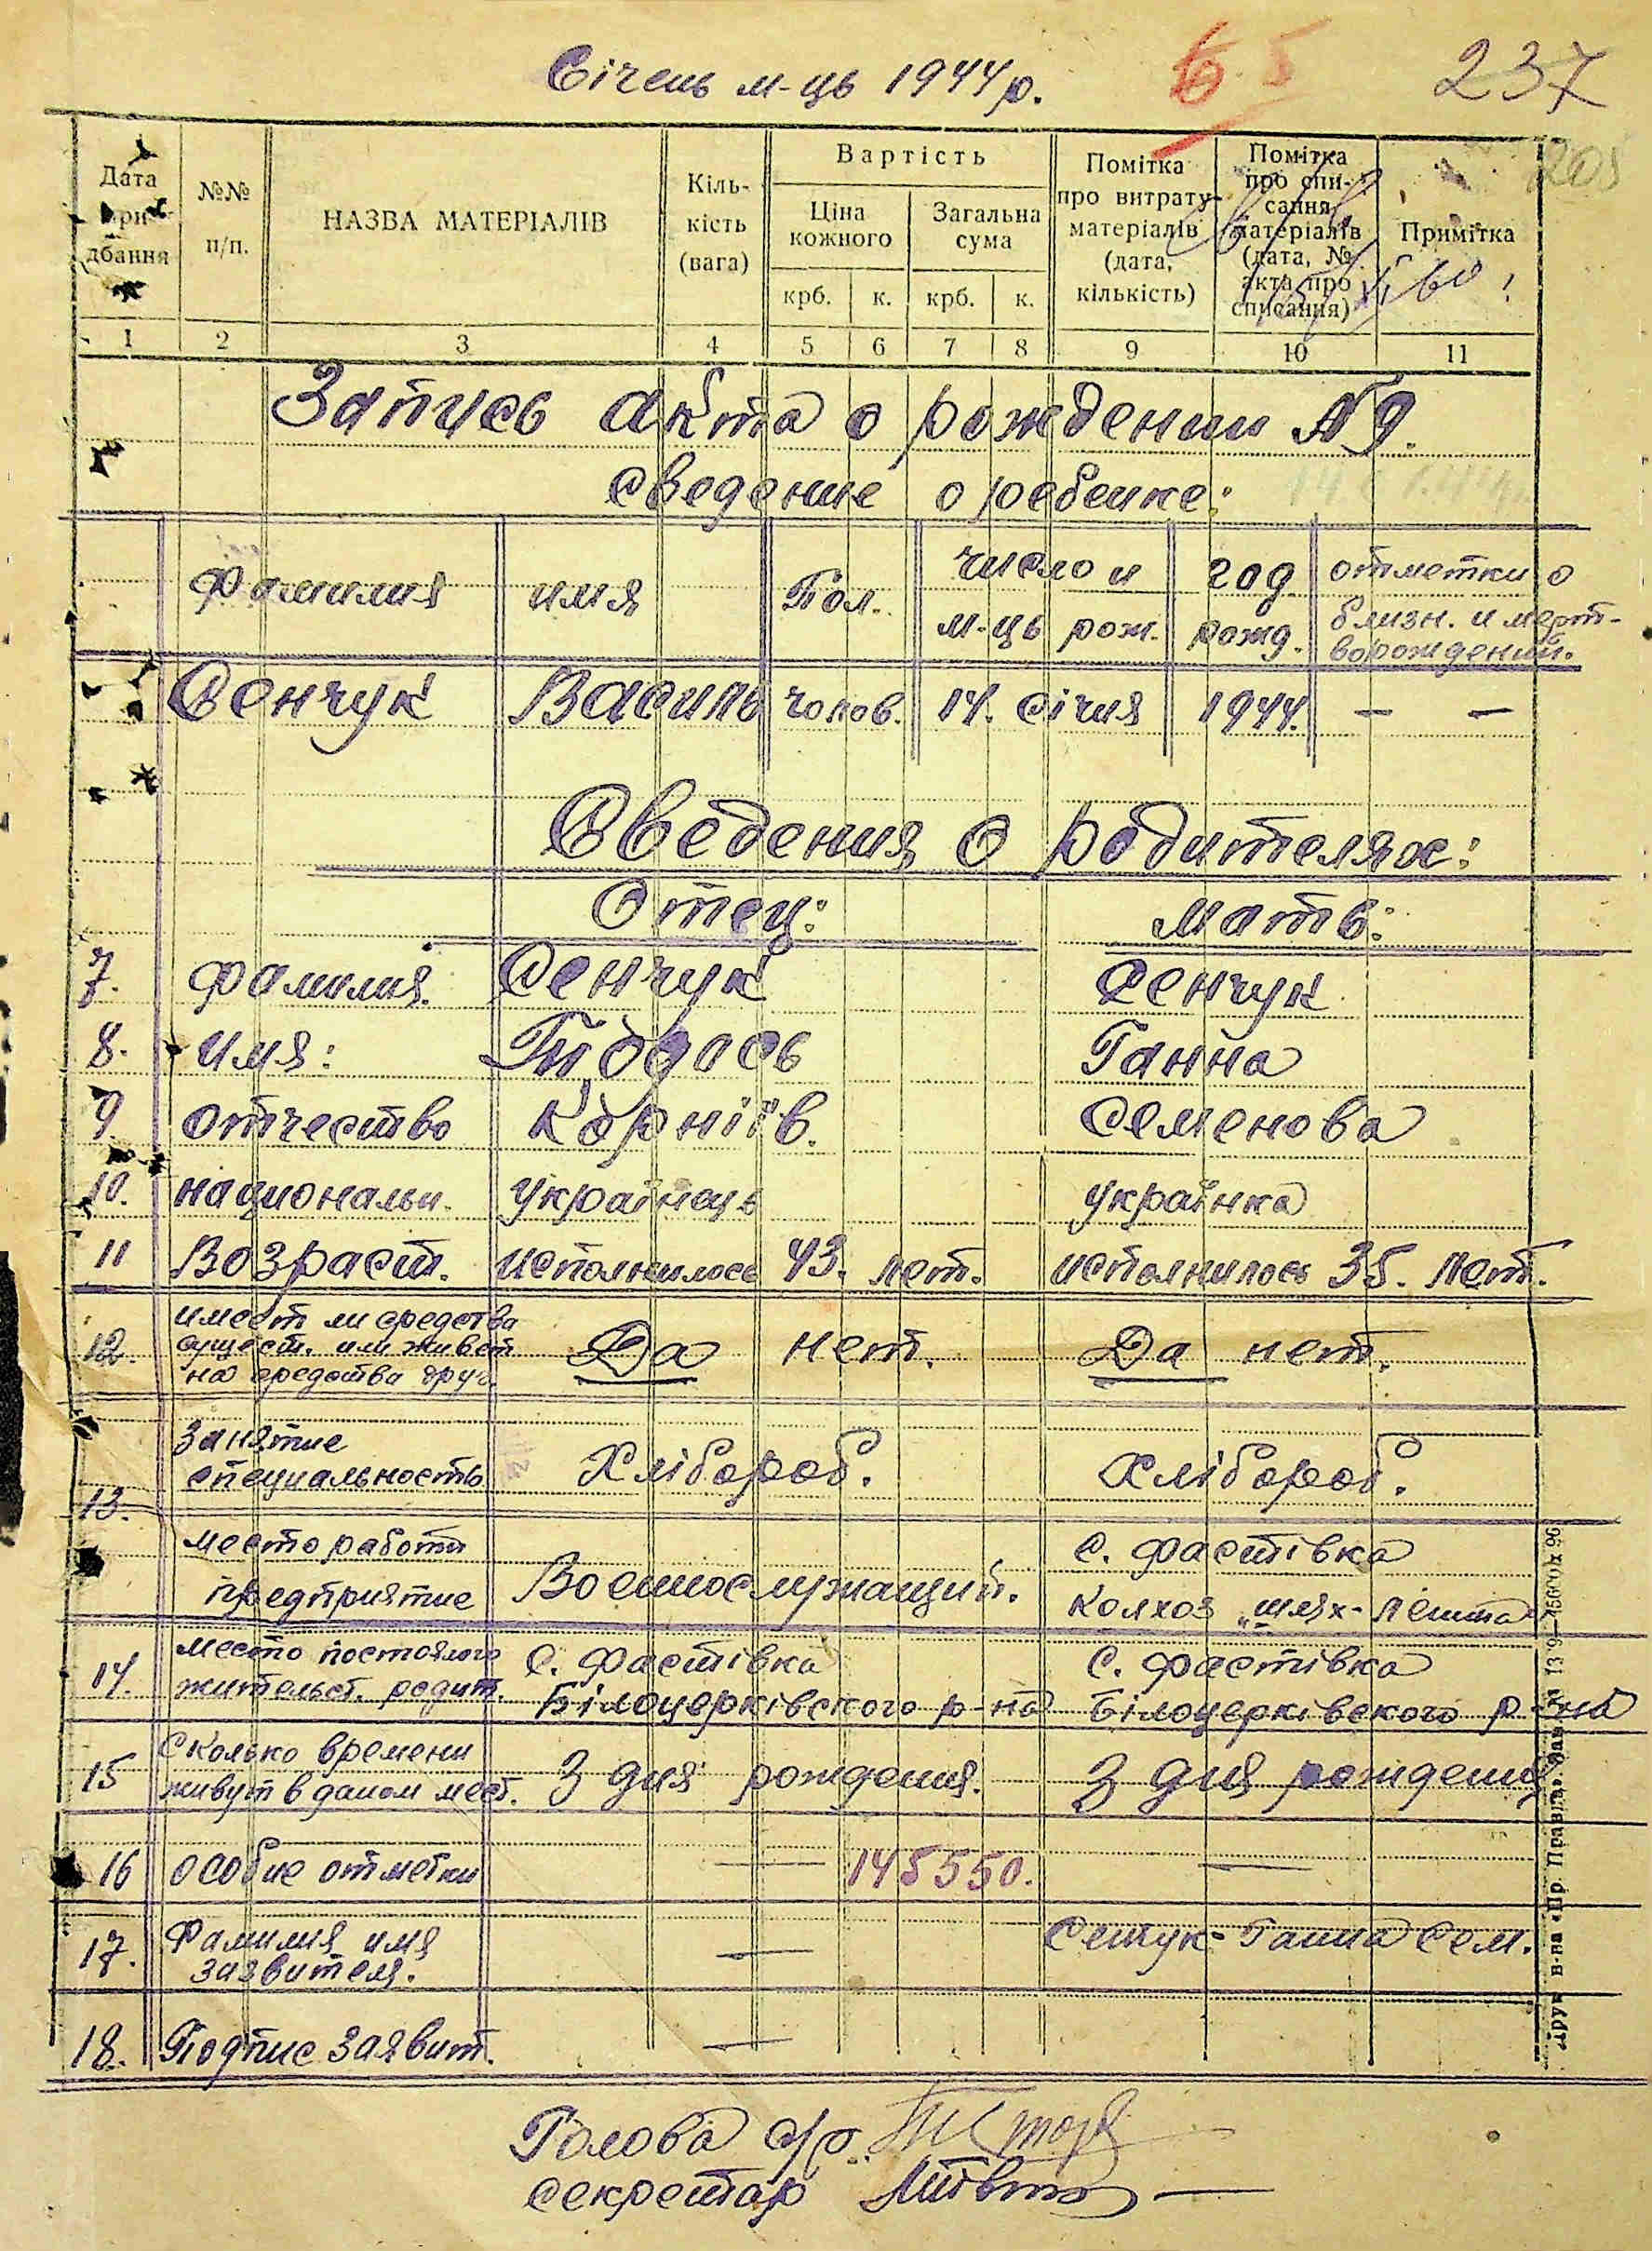 Січень м-ць 1944 р.
65
237
205
Дата при-дбання
№№ п/п.
НАЗВА МАТЕРІАЛІВ
Кіль-кість (вага)
Вартість
Ціна кожного
Загальна сума
крб. к. крб. к.
Помітка про витрату матеріалів (дата, кількість)
Помітка про спи-сання матеріалів (дата, № акта про списання)
Примітка
1 2 3 4 5 6 7 8 9 10 11
Запись акта о рождении № 9.
сведение о ребенке:
Фамилия имя Пол. число и м-ць рож. год рожд. отметки о близн. и мерт-ворождений.
Сенчук Василь чолов. 14. січня 1944. — —
Сведения о родителях:
Отец: мать:
7. фамилия. Сенчук Сенчук
8. имя: Ганна
9. отчество Корніїв. Семенова
10. национальн. українець українка
11 Возраст. исполнилось 43. лет. исполнилось 35. лет.
12. имеет ли средства сущест. или живет на средства друг. Да нет. Да нет.
13. Занятие специальность Хлібороб. Хлібороб.
место работы предприятие Военнослужащий. с. Фастівка колхоз „шлях-
14. место постояного жительст. родит. С. Фастівка Білоцерківского р-на С. Фастівка Білоцерківского р-на
15 Сколько времени живут в даном мест. З дня рождения. З дня рождения
16 особие отметки — 145550. —
17. Фамилия имя заявителя. — Сенчук-Ганна Сем.
18. Подпис заявит. —
Голова с/р.
секретар